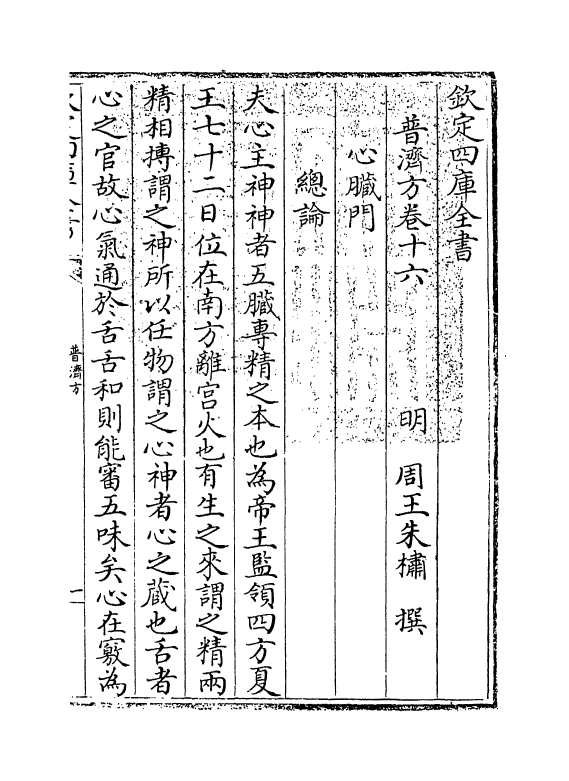 欽定四庫全書
普濟方卷十六
明 周王朱橚 撰
心臟門
總論
夫心主神神者五臟專精之本也為帝王監領四方夏
王七十二日位在南方離宫火也有生之來謂之精兩
精相搏謂之神所以任物謂之心神者心之藏也舌者
心之官故心氣通於舌舌和則能審五味矣心在竅為
普濟方
一